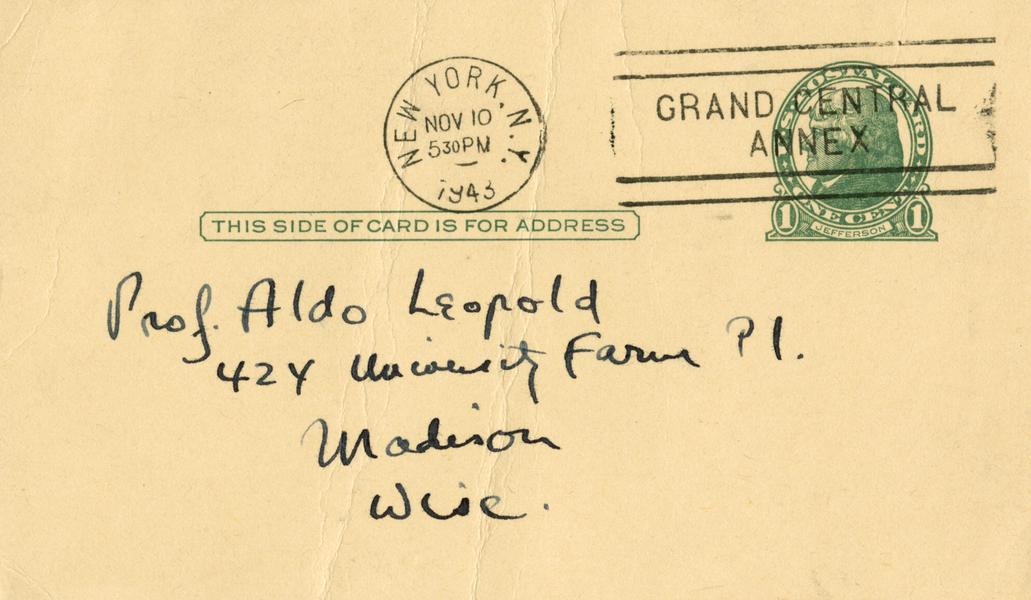 NEW YORK, N.Y.
NOV 10
530 PM
1943
GRAND CENTRAL
ANNEX
POSTAL CARD
ONE CENT
1 JEFFERSON 1
THIS SIDE OF CARD IS FOR ADDRESS
Prof. Aldo Leopold
424 University Farm Pl.
Madison
Wisc.